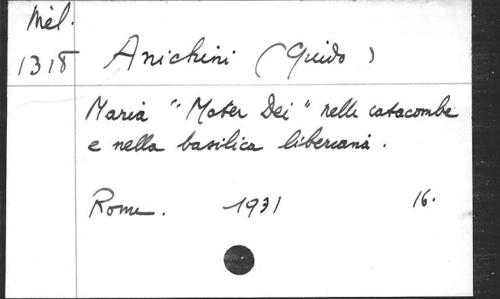 Mél.
1318 Anichini (Guido)
Maria "Mater Dei" nelle catacombe
e nella basilica liberiana.
Rome. 1931 16.